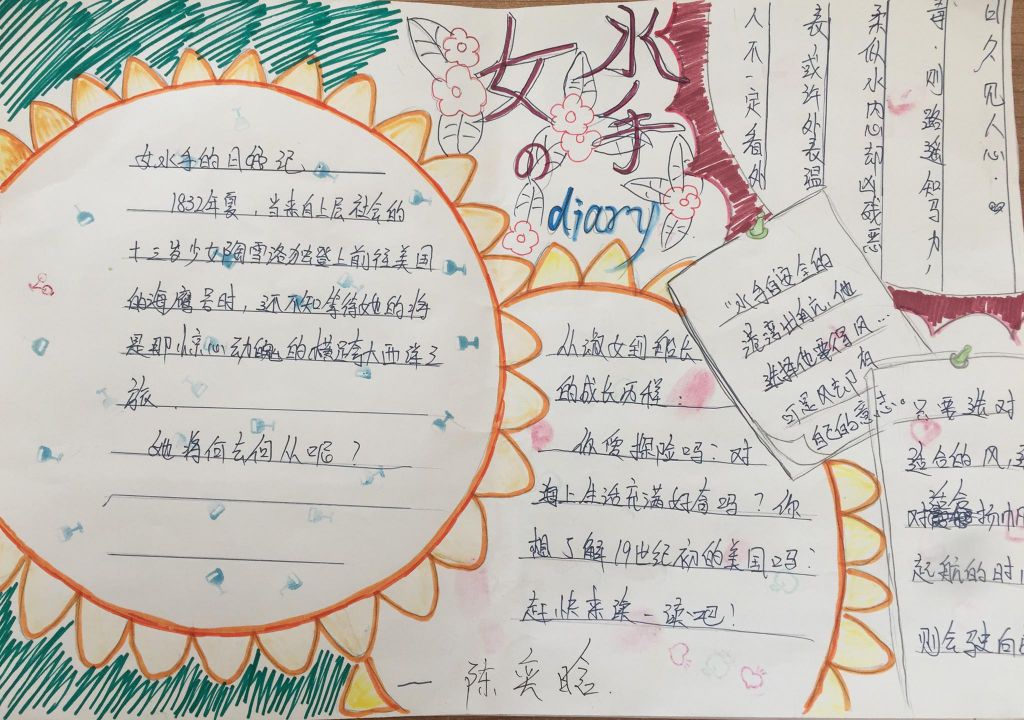 女水手の
diary
女水手的日记
1832年夏，当来自上层社会的
十三岁少女陶雪洛独登上前往美国
的海鹰号时，还不知等待她的将
是那惊心动魄的横跨大西洋之
旅.
她将何去何从呢？
从淑女到船长
的成长历程：
你爱探险吗？对
海上生活充满好奇吗？你
想了解19世纪初的美国吗？
赶快来读一读吧！
日久见人心.
毒.则路遥知马力，
柔似水内心却凶残恶
表或许外表温
人不一定看外
“水手自安全的
港湾出航.他
选择他要
风...
可是风九只有
自己的意志。
只要张对
适合的风，
对
扬帆
起航的时
则会驶向
—陈奕晗.